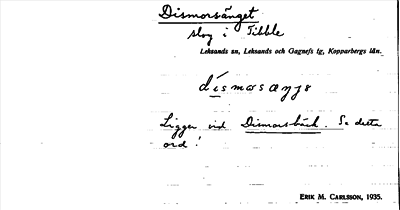 Dismorsänget
slog i Tibble
Leksands sn, Leksands och Gagnefs tg, Kopparbergs län.
dísmosæŋjə
Ligger vid Dismorsbäck. Se detta
ord!
ERIK M. CARLSSON, 1935.